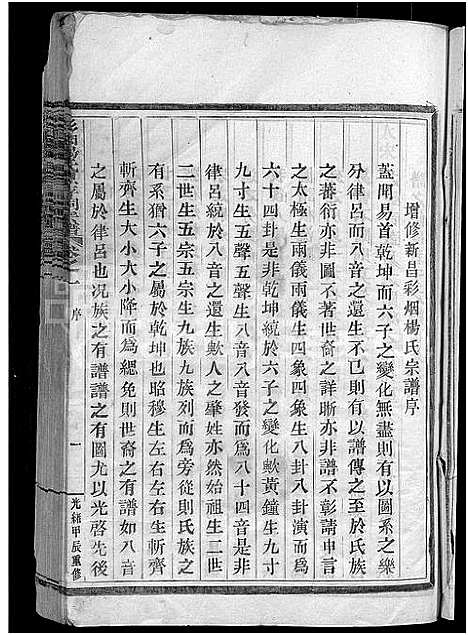 增修新昌彩烟楊氏宗譜序
蓋聞易首乾坤而六子之變化無盡則有以圖系之樂
分律呂而八音之還生不以有以譜傳之至於氏族
之蕃衍亦非圖不著世裔之詳晰亦非譜不彰請申言
之太極生兩儀兩儀生四象四象生八卦八卦演而為
六十四卦是非乾坤統於六子之變化歟黃鐘生九寸
九寸生五聲五聲生八音八音發而為八十四音是非
律呂統於八音之還生歟人之肇姓亦然始祖生二世
二世生五宗五宗生九族九族列而為旁從則氏族之
有系猶六子之屬於乾坤也昭穆生左右左右生斬齊
斬齊生大小大小降而為緦免則世裔之有譜如八音
之屬於律呂也況族之有譜譜之有圖尤以光啓先後
序
一
光緒甲辰重修